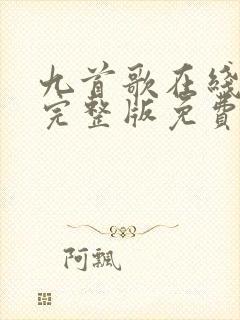 九首歌在线
完整版免費
阿飄